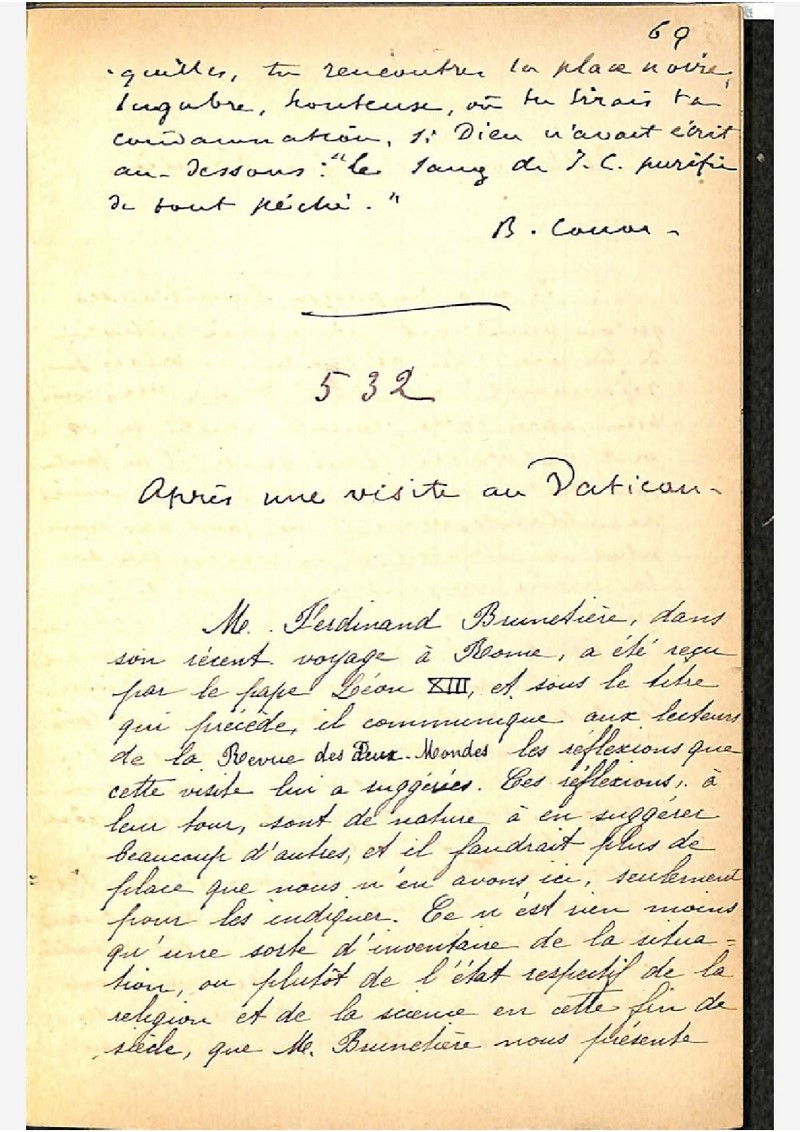 69
quilles, tu rencontres la place noire,
lugubre, honteuse, où tu lirais ta
condamnation, si Dieu n'avait écrit
au-dessous : "le sang de J. C. purifie
de tout péché."
B.
532
Après une visite au Vatican-
M. Ferdinand Brunetière, dans
son récent voyage à Rome, a été reçu
par le pape Léon XIII, et sous le titre
qui précède, il communique aux lecteurs
de la Revue des Deux-Mondes les réflexions que
cette visite lui a suggérées. Ces réflexions, à
leur tour, sont de nature à en suggérer
beaucoup d'autres, et il faudrait plus de
place que nous n'en avons ici, seulement
pour les indiquer. Ce n'est rien moins
qu'une sorte d'inventaire de la situa=
tion, ou plutôt de l'état respectif de la
religion et de la science en cette fin de
siècle, que M. Brunetière nous présente